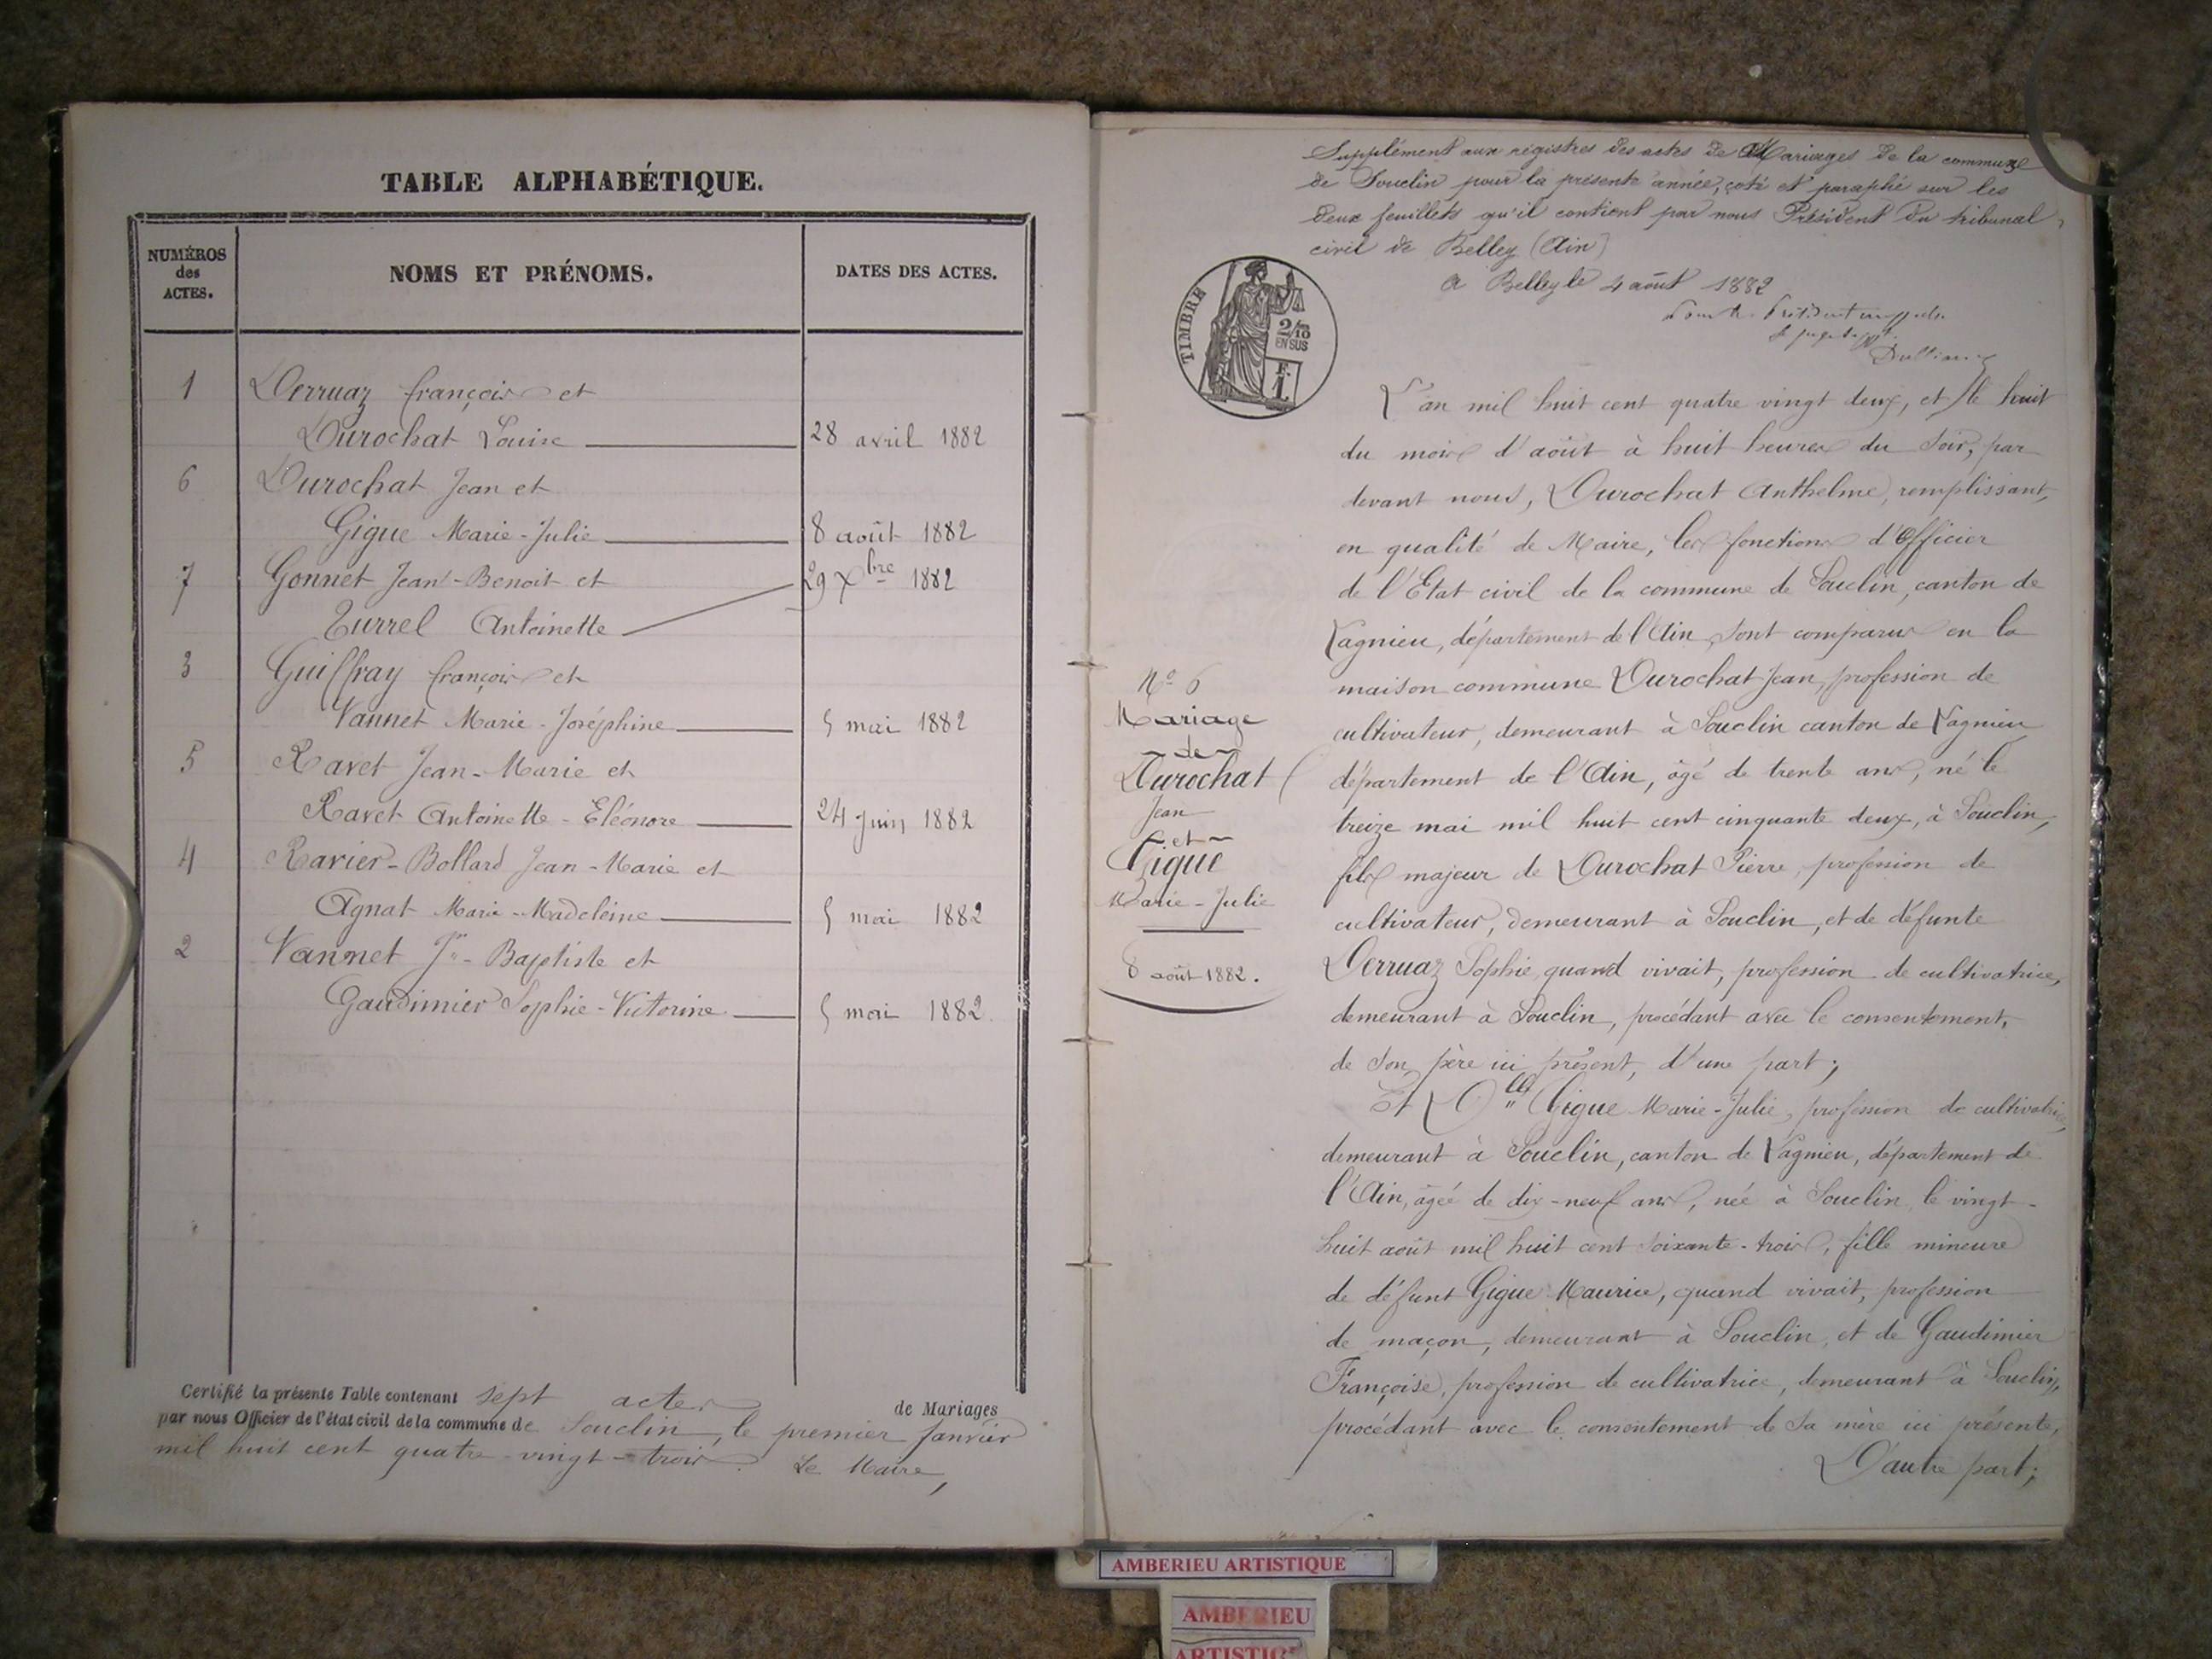 TABLE ALPHABÉTIQUE.
NUMÉROS des ACTES.
NOMS ET PRÉNOMS.
DATES DES ACTES.
1 Derruaz François et
Durochat Louise 28 avril 1882
6 Durochat Jean et
Gigue Marie-Julie 8 août 1882
7 Gonnet Jean-Benoit et 29 Xbre 1882
Turrel Antoinette
3 Guiffray François et
Vannet Marie-Joséphine 5 mai 1882
5 Ravet Jean-Marie et
Ravet Antoinette-Eléonore 24 Juin 1882
4 Ravier-Bollard Jean-Marie et
Agnat Marie-Madeleine 5 mai 1882
2 Vannet Jn-Baptiste et
Gaudimier Sophie-Victorine 5 mai 1882.
Certifié la présente Table contenant sept actes de Mariages
par nous Officier de l'état civil de la commune de Souclin, le premier Janvier
mil huit cent quatre-vingt-trois. Le Maire,
Supplément aux régistres des actes de Mariages de la commune
de Souclin pour la présente année, coté et paraphé sur les
deux feuillets qu'il contient par nous Président du tribunal
civil de Belley (Ain)
A Belley le 4 août 1882
TIMBRE
2/10
EN SUS
F.
1.
L'an mil huit cent quatre vingt deux, et le huit
du mois d'août à huit heures du soir, par
devant nous, Durochat Anthelme, remplissant,
en qualité de Maire, les fonctions d'Officier
de l'Etat civil de la commune de Souclin, canton de
Lagnieu, département de l'Ain, sont comparus en la
maison commune Durochat Jean, profession de
cultivateur, demeurant à Souclin canton de Lagnieu
département de l'Ain, âgé de trente ans, né le
treize mai mil huit cent cinquante deux, à Souclin,
fils majeur de Durochat Pierre, profession de
cultivateur, demeurant à Souclin, et de défunte
Derruaz Sophie, quand vivait, profession de cultivatrice,
demeurant à Souclin, procédant avec le consentement,
de son père ici présent, d'une part;
Et Dlle Gigue Marie-Julie, profession de cultivatrice,
demeurant à Souclin, canton de Lagnieu, département de
l'Ain, âgée de dix-neuf ans, née à Souclin, le vingt-
huit août mil huit cent soixante-trois, fille mineure
de défunt Gigue Maurice, quand vivait, profession
de maçon, demeurant à Souclin, et de Gaudimier
Françoise, profession de cultivatrice, demeurant à Souclin,
procédant avec le consentement de sa mère ici présente,
D'autre part;
No 6
Mariage
de
Durochat
Jean
et
Gigue
Marie-Julie
8 août 1882.
AMBERIEU ARTISTIQUE
AMBERIEU
ARTISTIQ